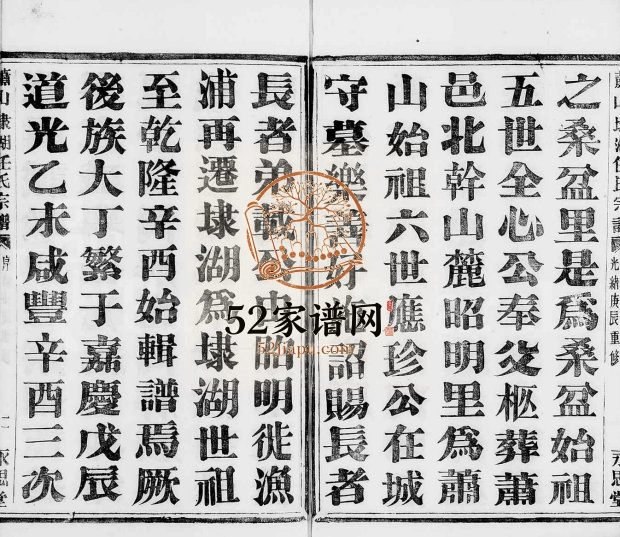 之桑盆里是爲桑盆始祖
五世全心公奉父柩葬蕭
邑北幹山麓昭明里爲蕭
山始祖六世應珍公在城
守墓樂善好施詔賜長者
長者弟載公由昭明徙漁
浦再遷埭湖爲埭湖世祖
至乾隆辛酉始輯譜焉厥
後族大丁繁于嘉慶戊辰
道光乙未咸豐辛酉三次
蕭山埭湖任氏宗譜
光緒庚辰重修
永思堂
蕭山埭湖任氏宗譜
二
永思堂
52家谱网
52jiapu.com